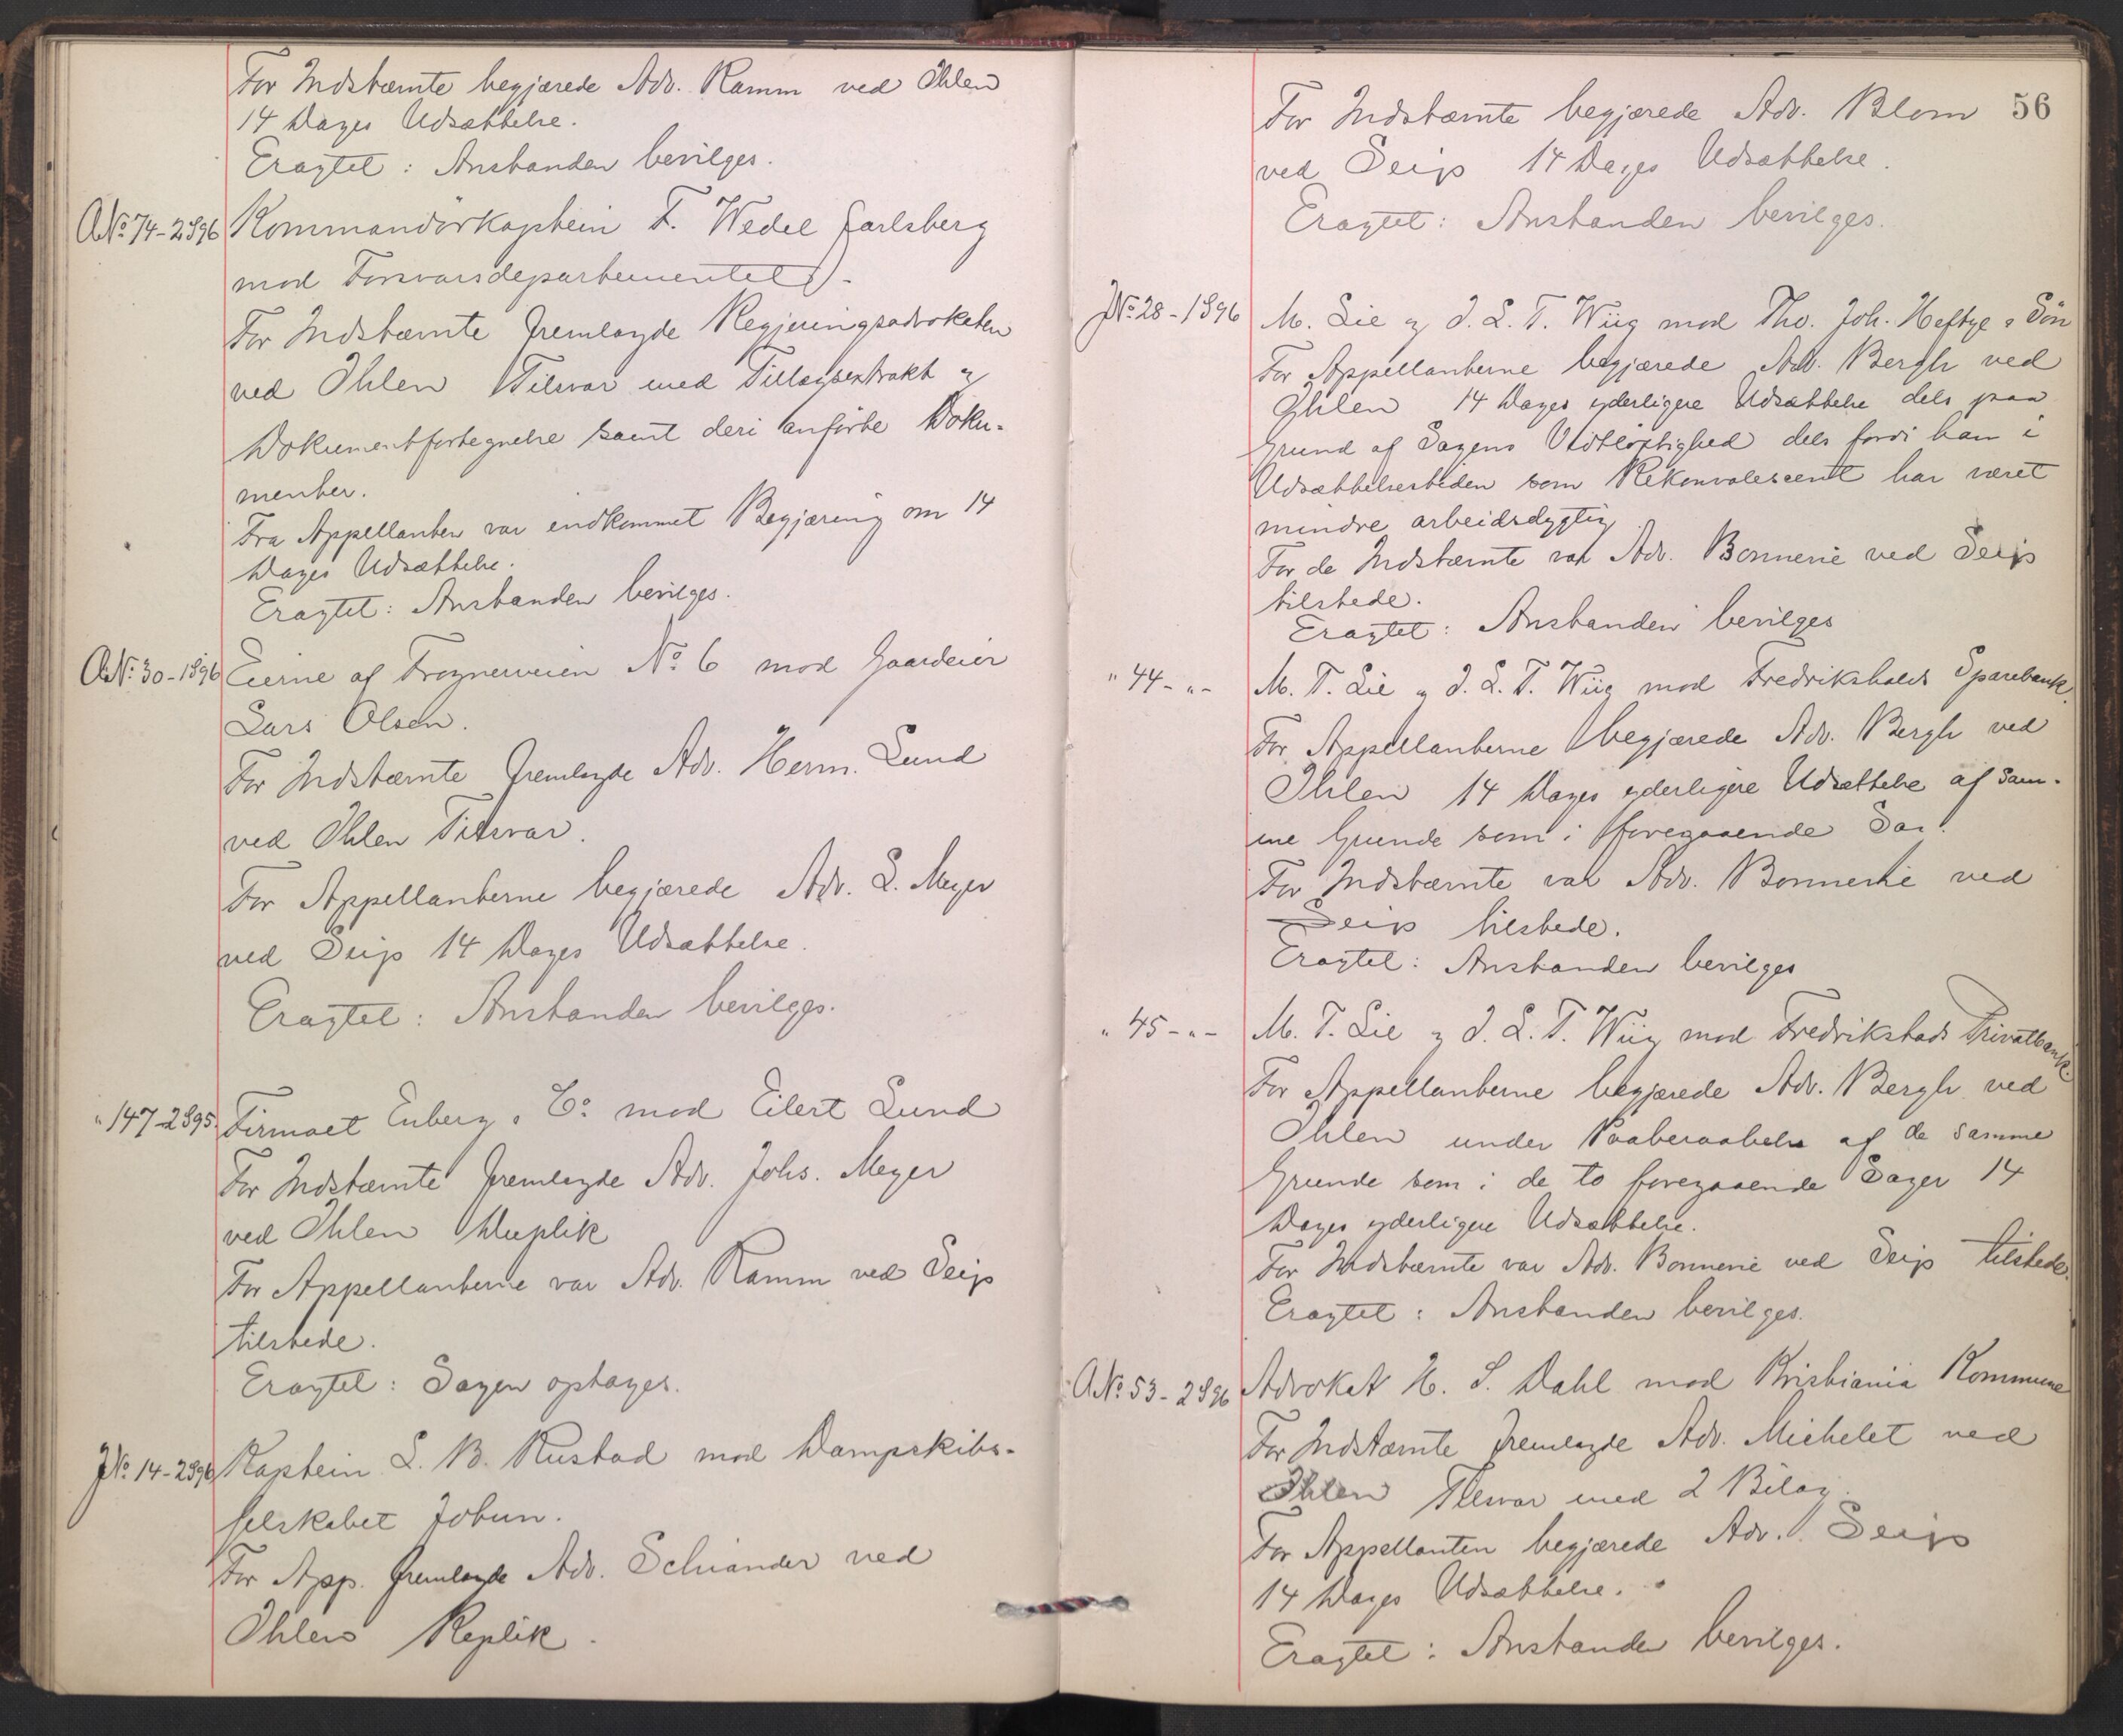 For Indstævnte begjærede Adv. Ramm ved Ihlen
14 Dages Udsættelse.
Eragtet: Anstanden bevilges.
A No. 74-2 896 Kommandörkaptein F. Wedel Jarlsberg
mod Forsvarsdepartementet.
For Indstævnte fremlagde Regjeringsadvokaten
ved Ihlen Tilsvar med Tillægsextrakt og
Dokumentfortegnelse samt deri anförte Doku-
menter.
Fra Appellanten var indkommet Begjæring om 14
Dages Udsættelse.
Eragtet: Anstanden bevilges.
A No. 30-1896 Eierne af Frognerveien No. 6 mod Gaardeier
Lars Olsen.
For Indstævnte fremlagde Adv. Herm. Lund
ved Ihlen Tilsvar.
For Appellanterne begjærede Adv. L. Meyer
ved Seip 14 Dages Udsættelse.
Eragtet: Anstanden bevilges.
" 147-2 895. Firmaet Enberg & Co. mod Eilert Lund
For Indstævnte fremlagde Adv. Johs. Meyer
ved Ihlen Duplik
For Appellanterne var Adv. Ramm ved Seip
tilstede.
Eragtet: Sagen optages.
J No. 14-2 896 Kaptein L. B. Rustad mod Dampskibs-
selskabet Jotun.
For App. fremlagde Adv. Schiander ved
Ihlen Replik.
56
For Indstævnte begjærede Adv. Blom
ved Seip 14 Dages Udsættelse.
Eragtet: Anstanden bevilges.
J No. 28-1896 M. Lie og J. L. T. Wiig mod Tho. Joh. Heftye & Sön
For Appellanterne begjærede Adv. Bergh ved
Ihlen 14 Dages yderligere Udsættelse dels paa
Grund af Sagens Vidtløftighed dels fordi han i
Udsættelsestiden som Rekonvalescent har været
mindre arbeidsdygtig
For de Indstævnte var Adv. Bonnevie ved Seip
tilstede.
Eragtet: Anstanden bevilges
" 44-"- M. T. Lie og J. L. T. Wiig mod Fredrikshalds Sparebank.
For Appellanterne begjærede Adv. Bergh ved
Ihlen 14 Dages yderligere Udsættelse af sam-
me Grunde som i foregaaende Sag.
For Indstævnte var Adv. Bonnevie ved
Seip tilstede.
Eragtet: Anstanden bevilges
" 45-"- M. T. Lie og J. L. T. Wiig mod Fredrikstads Privatbank.
For Appellanterne begjærede Adv. Bergh ved
Ihlen under Paaberaabelse af de samme
Grunde som i de to foregaaende Sager 14
Dages yderligere Udsættelse.
For Indstævnte var Adv. Bonnevie ved Seip tilstede.
Eragtet: Anstanden bevilges.
A No. 53-2 896 Advokat H. S. Dahl mod Kristiania Kommune
For Indstævnte fremlagde Adv. Michelet ved
Ihlen Tilsvar med 2 Bilag.
For Appellanten begjærede Adv. Seip
14 Dages Udsættelse.
Eragtet: Anstanden bevilges.